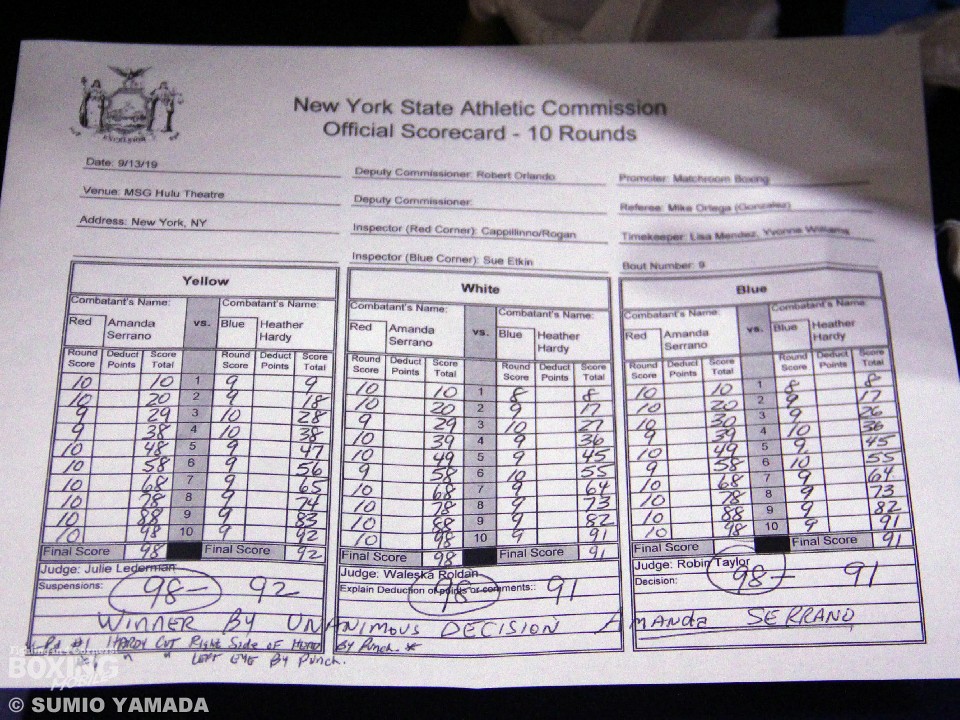 EXCELSIOR
New York State Athletic Commission
Official Scorecard - 10 Rounds
Date: 9/13/19
Venue: MSG Hulu Theatre
Address: New York, NY
Deputy Commissioner: Robert Orlando
Deputy Commissioner:
Inspector (Red Corner): Cappillinno/Rogan
Inspector (Blue Corner): Sue Etkin
Promoter: Matchroom Boxing
Referee: Mike Ortega (Gonzalez)
Timekeeper: Lisa Mendez, Yvonne Williams
Bout Number: 9
Yellow
Combatant's Name: vs. Combatant's Name:
Red Amanda Serrano Blue Heather Hardy
Round Score Deduct Points Score Total Round Score Deduct Points Score Total
10 10 1 9 9
10 20 2 9 18
9 29 3 10 28
9 38 4 10 38
10 48 5 9 47
10 58 6 9 56
10 68 7 9 65
10 78 8 9 74
10 88 9 9 83
10 98 10 9 92
Final Score 98 Final Score 92
Judge: Julie Lederman
Suspensions: 98- 92
White
Combatant's Name: vs. Combatant's Name:
Red Amanda Serrano Blue Heather Hardy
Round Score Deduct Points Score Total Round Score Deduct Points Score Total
10 10 1 8 8
10 20 2 9 17
9 29 3 10 27
10 39 4 9 36
10 49 5 9 45
9 58 6 10 55
10 68 7 9 64
10 78 8 9 73
10 88 9 9 82
10 98 10 9 91
Final Score 98 Final Score 91
Judge: Waleska Roldan
Explain Deduction of points or comments:: 98- 91
Blue
Combatant's Name: vs. Combatant's Name:
Red Amanda Serrano Blue Heather Hardy
Round Score Deduct Points Score Total Round Score Deduct Points Score Total
10 10 1 8 8
10 20 2 9 17
10 30 3 9 26
9 39 4 10 36
10 49 5 9 45
9 58 6 10 55
10 68 7 9 64
10 78 8 9 73
10 88 9 9 82
10 98 10 9 91
Final Score 98 Final Score 91
Judge: Robin Taylor
Decision: 98- 91
WINNER BY UNANIMOUS DECISION AMANDA SERRANO
Rd #1 HARDY CUT Right Side of HEAD By Punch. *
#1 " " LEFT EYE By Punch.
BOXING
© SUMIO YAMADA